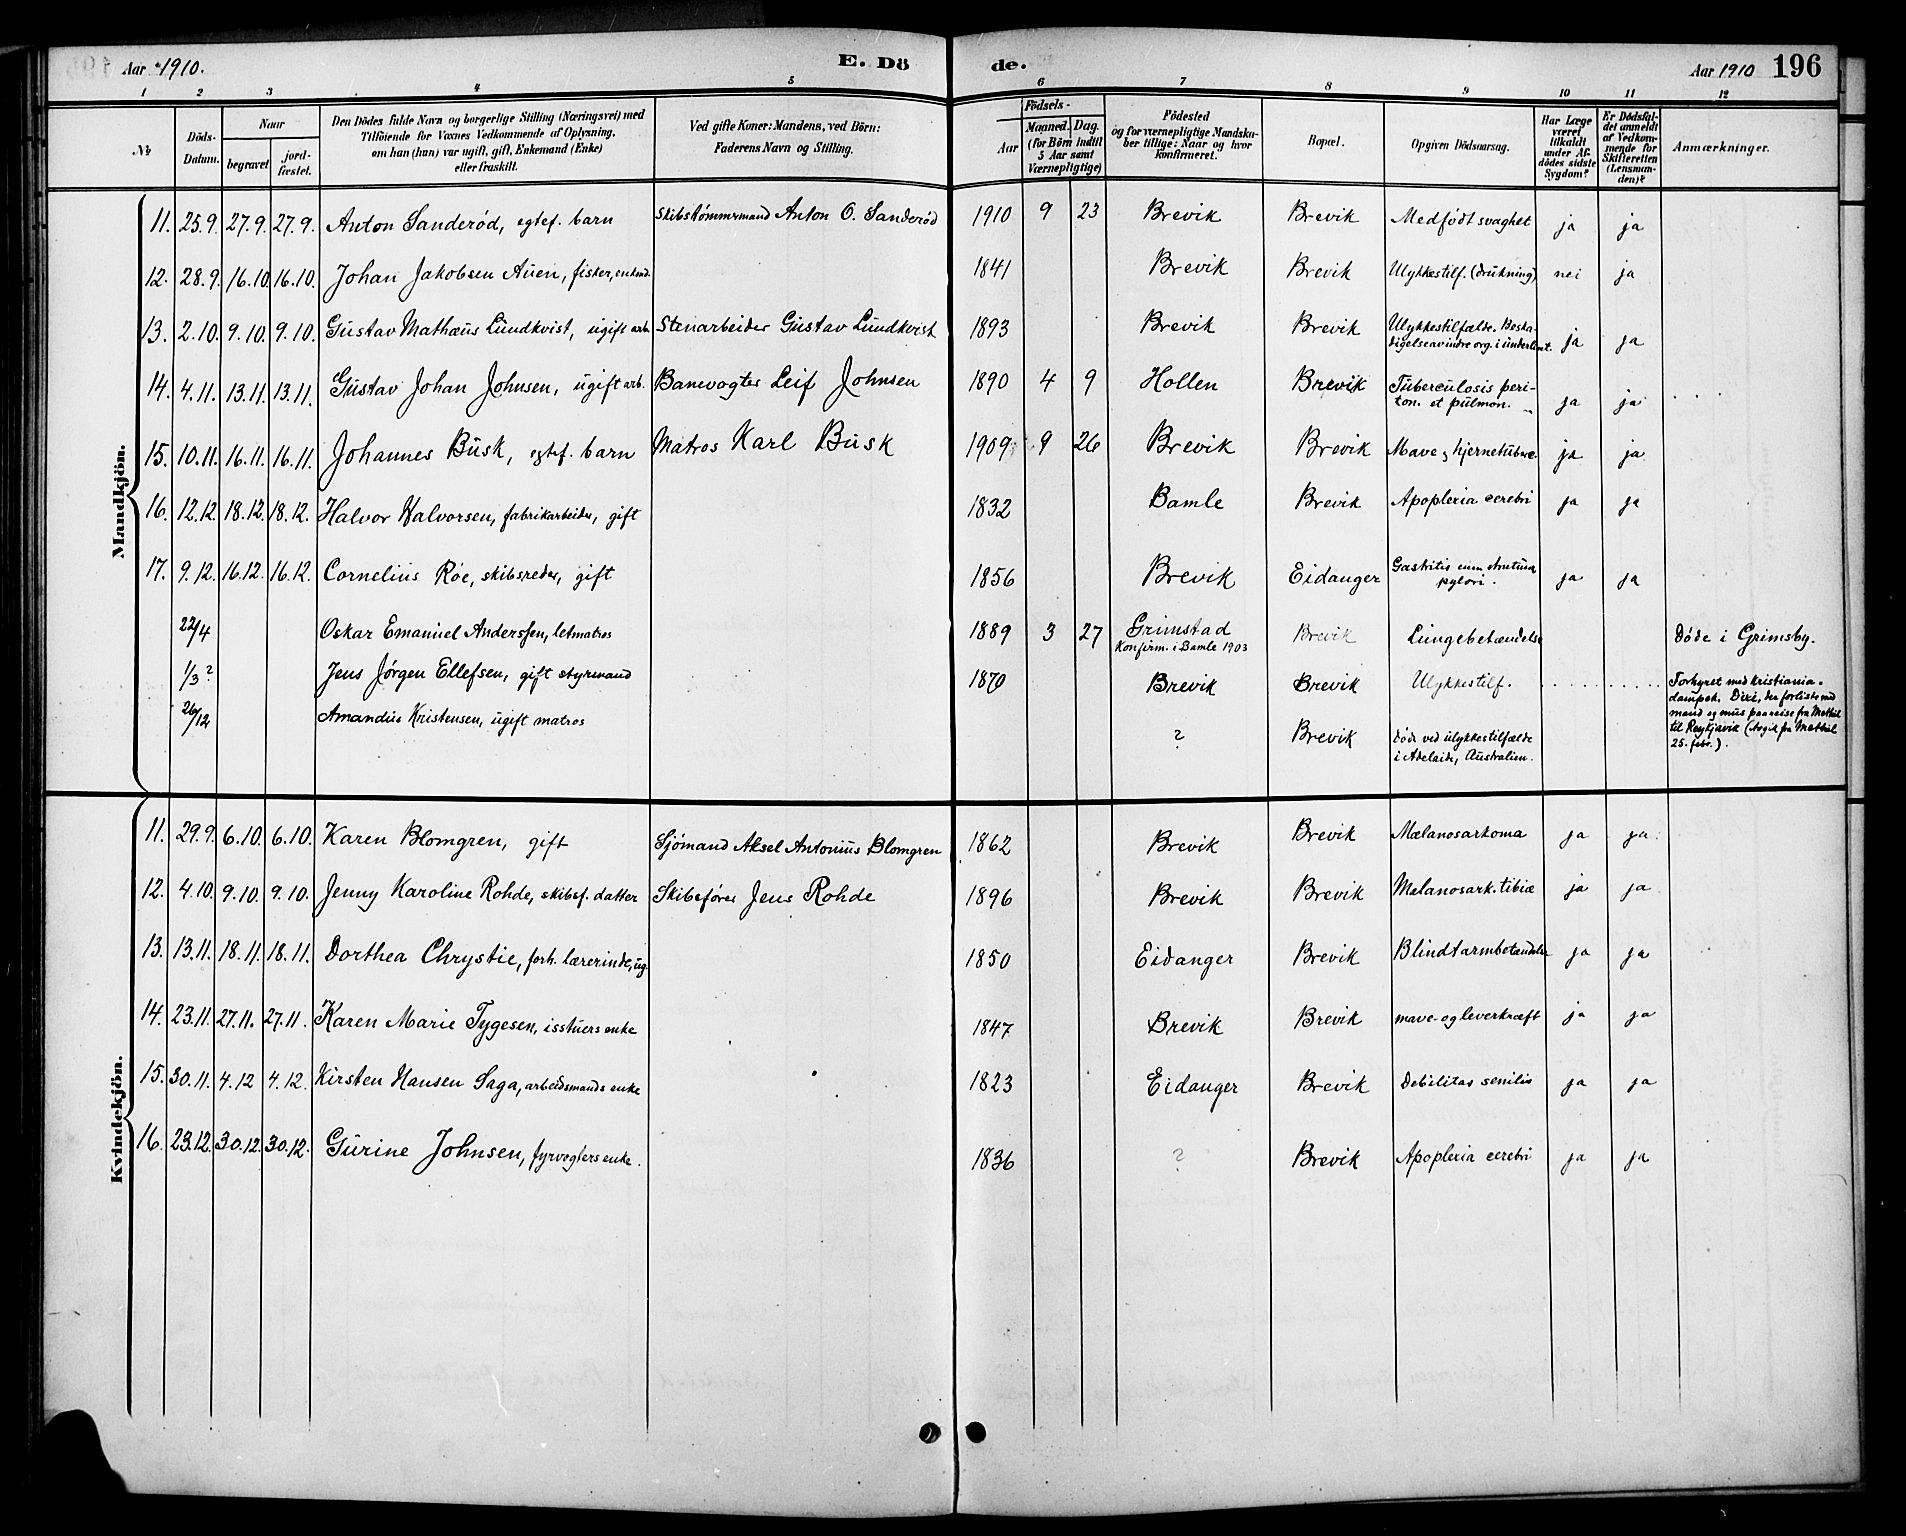 Aar 1910.
E. Dö
de.
Aar 1910 196
1 2 3 4 5 6 7 8 9 10 11 12
No
Döds-Datum.
Naar
begravet
jord-fæstet.
Den Dödes fulde Navn og borgerlige Stilling (Næringsvei) med
Tilföiende for Voxnes Vedkommende af Oplysning,
om han (hun) var ugift, gift, Enkemand (Enke)
eller fraskilt.
Ved gifte Koner: Mandens, ved Börn:
Faderens Navn og Stilling.
Födsels-
Aar
Maaned. Dag.
(for Börn indtil
5 Aar samt
Værnepligtige)
Födested
og for værnepligtige Mandska-
ber tillige: Naar og hvor
konfirmeret.
Bopæl.
Opgiven Dödsaarsag.
Har Læge
været
tilkaldt
under Af-
dödes sidste
Sygdom?
Er Dödsfal-
det anmeldt
af Vedkom-
mende for
Skifteretten
(Lensman-
den)?
Anmærkninger.
Mandkjön.
11. 25.9. 27.9. 27.9. Anton Sanderød, egtef. barn Skibstømmermand Anton O. Sanderød 1910 9 23 Brevik Brevik Medfødt svaghet ja ja
12. 28.9. 16.10. 16.10. Johan Jakobsen Auen, fisker, enkmd. 1841 Brevik Brevik Ulykkestilf. (drukning) nei ja
13. 2.10. 9.10. 9.10. Gustav Mathæus Lundkvist, ugift arb. Stenarbeider Gustav Lundkvist 1893 Brevik Brevik Ulykkestilfælde. Beska-
digelse av indre org. i underlivet. ja ja
14. 4.11. 13.11. 13.11. Gustav Johan Johnsen, ugift arb. Banevogter Leif Johnsen 1890 4 9 Hollen Brevik Tuberculosis peri-
ton. et pulmon. ja ja
15. 10.11. 16.11. 16.11. Johannes Busk, egtef. barn Matros Karl Busk 1909 9 26 Brevik Brevik Mave & hjernetuberc. ja ja
16. 12.12. 18.12. 18.12. Halvor Halvorsen, fabrikarbeider, gift 1832 Bamle Brevik Apoplexia cerebri ja ja
17. 9.12. 16.12. 16.12. Cornelius Røe, skibsreder, gift 1856 Brevik Eidanger Gastritis cum
pylori. ja ja
22/4 Oskar Emanuel Anderssen, letmatros 1889 3 27 Grimstad
Konfirm. i Bamle 1903 Brevik Lungebetændelse Døde i Grimsby.
1/3? Jens Jørgen Ellefsen, gift styrmand 1870 Brevik Brevik Ulykkestilf. Forhyret med kristiania-
dampsk. Dixi, der forliste med
mand og mus paa reise fra Methil
til Reykjavik (Avgik fra Methil
25. febr.).
26/12 Amandus Kristensen, ugift matros ? Brevik Døde ved ulykkestilfælde
i Adelaide, Australien.
Kvindekjön.
11. 29.9. 6.10. 6.10. Karen Blomgren, gift Sjømand Aksel Antonius Blomgren 1862 Brevik Brevik Mælanosarkoma ja ja
12. 4.10. 9.10. 9.10. Jenny Karoline Rohde, skibsf. datter Skibsfører Jens Rohde 1896 Brevik Brevik Melanosark. tibiæ ja ja
13. 13.11. 18.11. 18.11. Dorthea Chrystie, forh. lærerinde, ug. 1850 Eidanger Brevik Blindtarmbetændelse ja ja
14. 23.11. 27.11. 27.11. Karen Marie Tygesen, isstuers enke 1847 Brevik Brevik mave- og leverkræft ja ja
15. 30.11. 4.12 4.12. Kirsten Hansen Saga, arbeidsmands enke 1823 Eidanger Brevik Debilitas senilis ja ja
16. 23.12. 30.12. 30.12. Gurine Johnsen, fyrvogters enke. 1836 ? Brevik Apoplexia cerebri ja ja